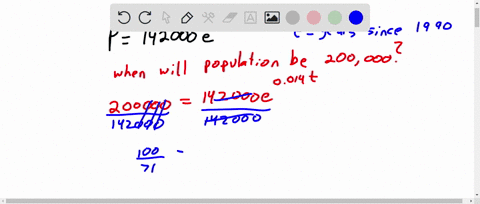 P = 142000 e t = years since 1990
when will population be 200,000?
200000 = 142000 e 0.014t
142000 142000
100 =
71